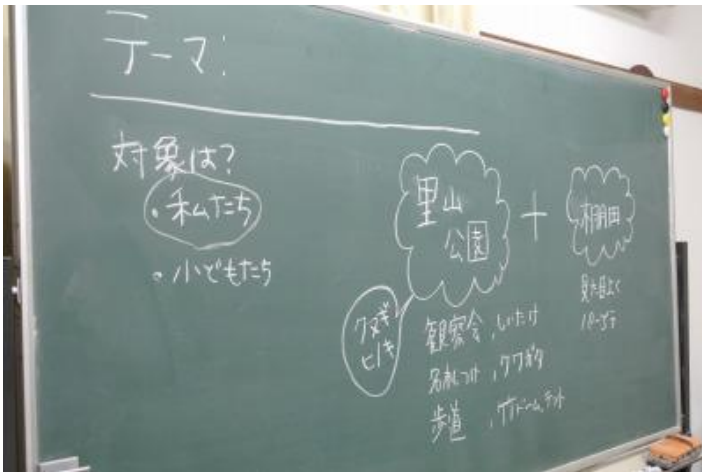 テーマ:
対象は?
・私たち
・小どもたち
里山
公園
+
棚田
クヌギ
ヒノキ
観察会、しいたけ
名札つけ、クワガタ
歩道、竹ドーム、テント
見た目よく